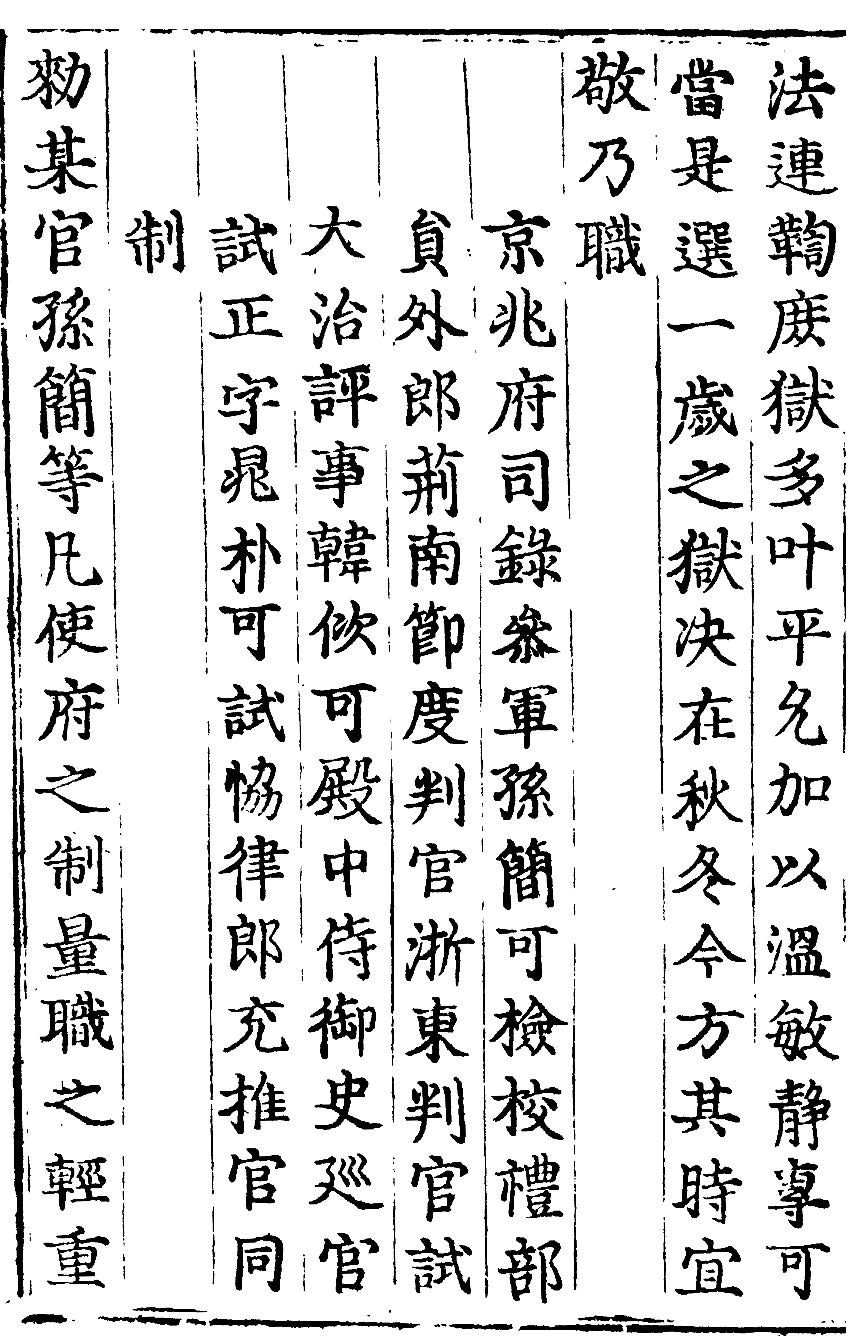 法連鞫庶獄多叶平允加以溫敏靜專可
當是選一歲之獄决在秋冬今方其時宜
敬乃職
京兆府司錄叅軍孫簡可檢校禮部
貟外郎荊南節度判官浙東判官試
大治評事韓佽可殿中侍御史廵官
試正字晁朴可試恊律郎充推官同
制
勑某官孫簡等凡使府之制量職之輕重